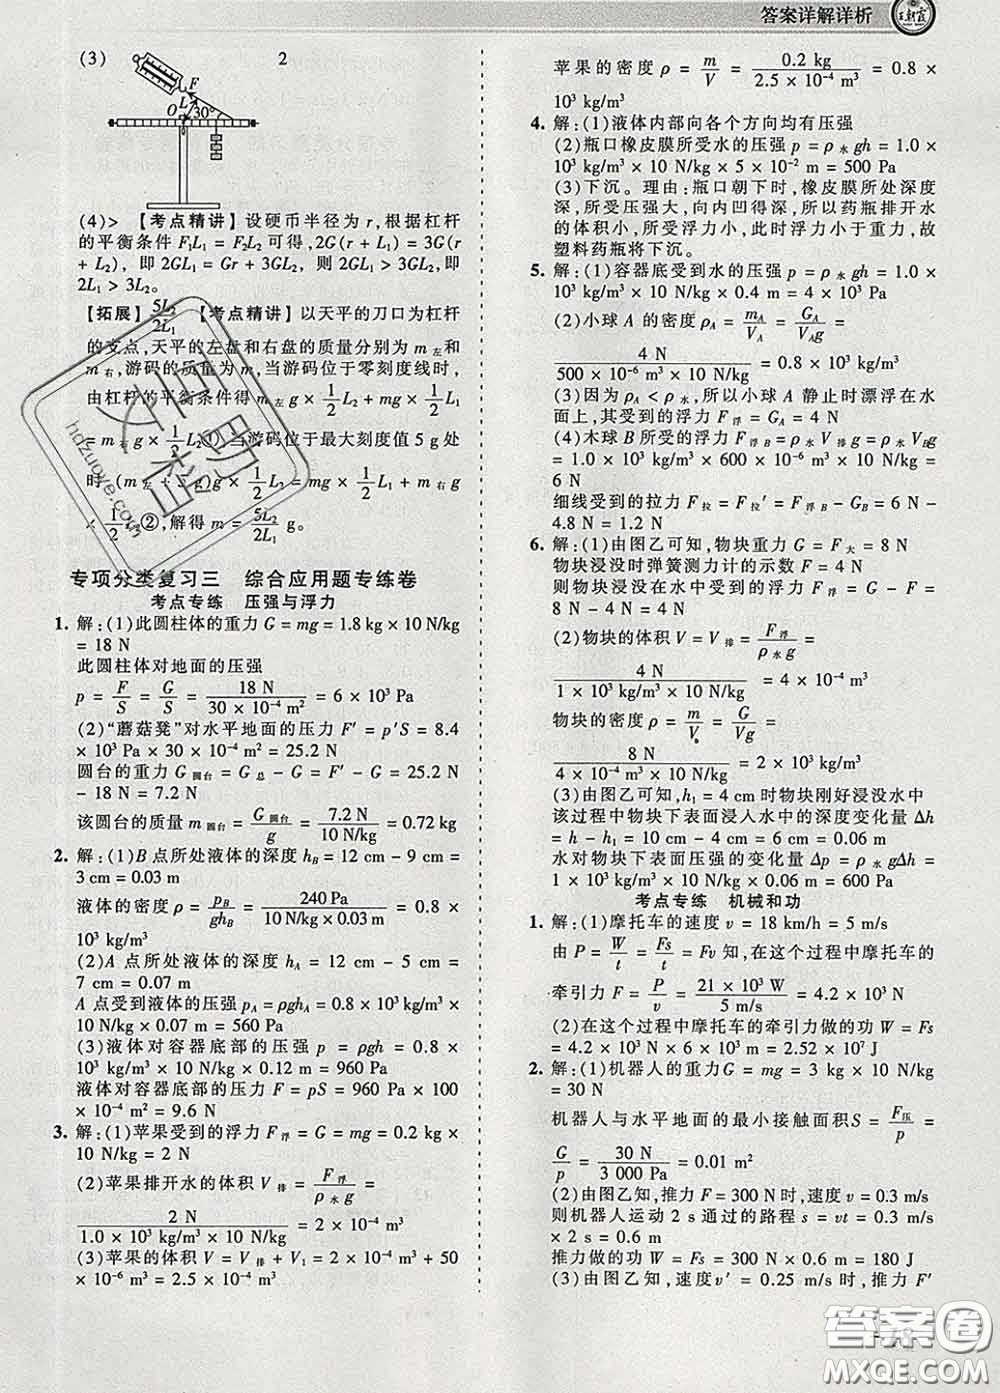 答案详解详析
王朝霞
(3) 2
F
L
O 30°
(4)> 【考点精讲】设硬币半径为 r,根据杠杆
的平衡条件 F₁L₁ = F₂L₂ 可得, 2G(r + L₁) = 3G(r
+ L₂), 即 2GL₁ = Gr + 3GL₂, 则 2GL₁ > 3GL₂, 即
2L₁ > 3L₂。
【拓展】5L₂/2L₁ 【考点精讲】以天平的刀口为杠杆
的支点,天平的左盘和右盘的质量分别为 m左和
m右,游码的质量为 m,当游码位于零刻度线时,
由杠杆的平衡条件得 m左g × 1/2 L₂ + mg × 1/2 L₁
= m右g × 1/2 L₂①,当游码位于最大刻度值 5 g 处
时 (m左 + 5g)g × 1/2 L₂ = mg × 1/2 L₁ + m右g
× 1/2 ②,解得 m = 5L₂/2L₁ g。
专项分类复习三 综合应用题专练卷
考点专练 压强与浮力
1. 解:(1)此圆柱体的重力 G = mg = 1.8 kg × 10 N/kg
= 18 N
此圆柱体对地面的压强
p = F/S = G/S = 18 N/30 × 10⁻⁴ m² = 6 × 10³ Pa
(2)“蘑菇凳”对水平地面的压力 F′ = p′S = 8.4
× 10³ Pa × 30 × 10⁻⁴ m² = 25.2 N
圆台的重力 G圆台 = G总 - G = F′ - G = 25.2 N
- 18 N = 7.2 N
该圆台的质量 m圆台 = G圆台/g = 7.2 N/10 N/kg = 0.72 kg
2. 解:(1)B 点所处液体的深度 hB = 12 cm - 9 cm =
3 cm = 0.03 m
液体的密度 ρ = pB/ghB = 240 Pa/10 N/kg × 0.03 m = 0.8 ×
10³ kg/m³
(2)A 点所处液体的深度 hA = 12 cm - 5 cm =
7 cm = 0.07 m
A 点受到液体的压强 pA = ρghA = 0.8 × 10³ kg/m³ ×
10 N/kg × 0.07 m = 560 Pa
(3)液体对容器底部的压强 p = ρgh = 0.8 ×
10³ kg/m³ × 10 N/kg × 0.12 m = 960 Pa
液体对容器底部的压力 F = pS = 960 Pa × 100
× 10⁻⁴ m² = 9.6 N
3. 解:(1)苹果受到的浮力 F浮 = G = mg = 0.2 kg ×
10 N/kg = 2 N
(2)苹果排开水的体积 V排 = F浮/ρ水g =
2 N/1.0 × 10³ kg/m³ × 10 N/kg = 2 × 10⁻⁴ m³
(3)苹果的体积 V = V排 + V₁ = 2 × 10⁻⁴ m³ + 50
× 10⁻⁶ m³ = 2.5 × 10⁻⁴ m³
苹果的密度 ρ = m/V = 0.2 kg/2.5 × 10⁻⁴ m³ = 0.8 ×
10³ kg/m³
4. 解:(1)液体内部向各个方向均有压强
(2)瓶口橡皮膜所受水的压强 p = ρ水gh = 1.0 ×
10³ kg/m³ × 10 N/kg × 5 × 10⁻² m = 500 Pa
(3)下沉。理由:瓶口朝下时,橡皮膜所处深度
深,所受压强大,向内凹得深,所以药瓶排开水
的体积小,所受浮力小,此时浮力小于重力,故
塑料药瓶将下沉。
5. 解:(1)容器底受到水的压强 p = ρ水gh = 1.0 ×
10³ kg/m³ × 10 N/kg × 0.4 m = 4 × 10³ Pa
(2)小球 A 的密度 ρA = mA/VA = GA/VAg =
4 N/500 × 10⁻⁶ m³ × 10 N/kg = 0.8 × 10³ kg/m³
(3)因为 ρA < ρ水,所以小球 A 静止时漂浮在水
面上,其受到的浮力 F浮 = GA = 4 N
(4)木球 B 所受的浮力 F浮B = ρ水V排g = ρ水VBg
= 1.0 × 10³ kg/m³ × 600 × 10⁻⁶ m³ × 10 N/kg =
6 N
细线受到的拉力 F拉 = F拉′ = F浮B - GB = 6 N -
4.8 N = 1.2 N
6. 解:(1)由图乙可知,物块重力 G = F大 = 8 N
物块浸没时弹簧测力计的示数 F = 4 N
则物块浸没在水中受到的浮力 F浮 = G - F =
8 N - 4 N = 4 N
(2)物块的体积 V = V排 = F浮/ρ水g =
4 N/1 × 10³ kg/m³ × 10 N/kg = 4 × 10⁻⁴ m³
物块的密度 ρ = m/V = G/Vg =
8 N/4 × 10⁻⁴ m³ × 10 N/kg = 2 × 10³ kg/m³
(3)由图乙可知, h₁ = 4 cm 时物块刚好浸没水中
该过程中物块下表面浸入水中的深度变化量 Δh
= h - h₁ = 10 cm - 4 cm = 6 cm = 0.06 m
水对物块下表面压强的变化量 Δp = ρ水gΔh =
1 × 10³ kg/m³ × 10 N/kg × 0.06 m = 600 Pa
考点专练 机械和功
1. 解:(1)摩托车的速度 v = 18 km/h = 5 m/s
由 P = W/t = Fs/t = Fv 知,在这个过程中摩托车的
牵引力 F = P/v = 21 × 10³ W/5 m/s = 4.2 × 10³ N
(2)在这个过程中摩托车的牵引力做的功 W = Fs
= 4.2 × 10³ N × 6 × 10³ m = 2.52 × 10⁷ J
2. 解:(1)机器人的重力 G = mg = 3 kg × 10 N/kg
= 30 N
机器人与水平地面的最小接触面积 S = F压/p =
G/p = 30 N/3 000 Pa = 0.01 m²
(2)由图乙知,推力 F = 300 N 时,速度 v = 0.3 m/s
则机器人运动 2 s 通过的路程 s = vt = 0.3 m/s
× 2 s = 0.6 m
推力做的功 W = Fs = 300 N × 0.6 m = 180 J
(3)由图乙知,速度 v′ = 0.25 m/s 时,推力 F′
答案圈
MXQE.COM
hdzuoye.com